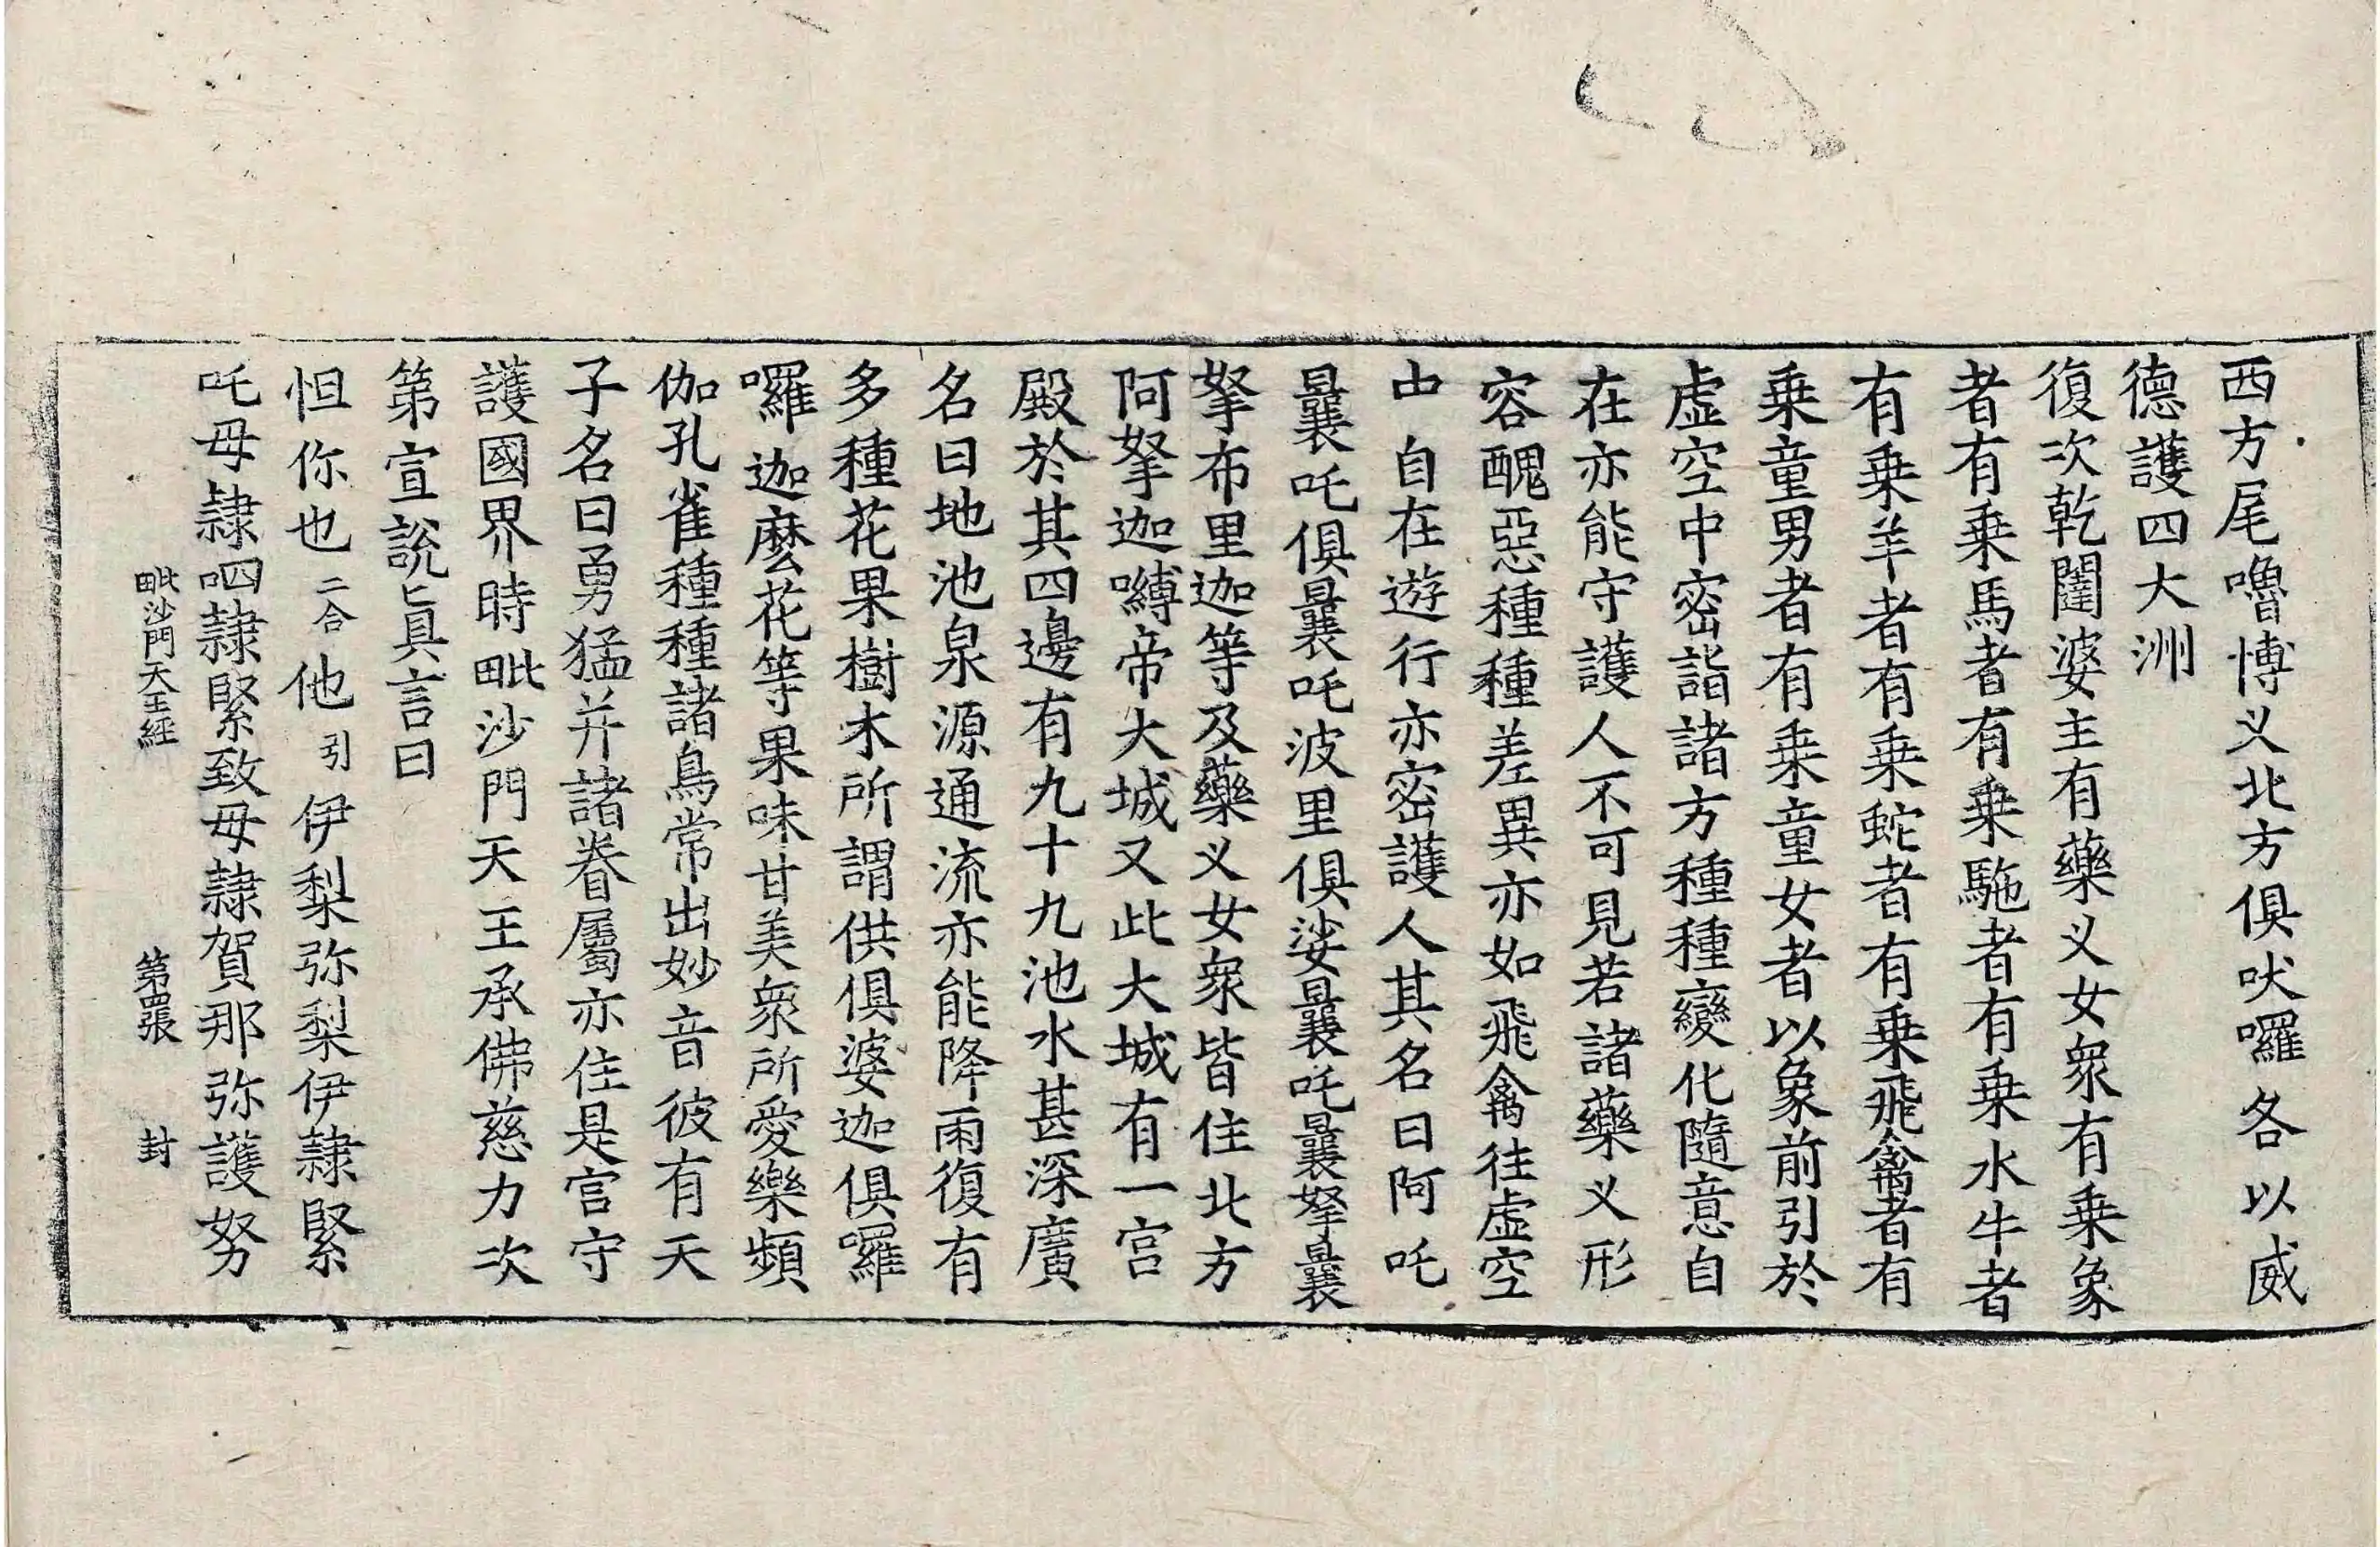 西方尾嚕博义北方俱吠囉各以威
德護四大洲
復次乾闥婆主有藥义女衆有乗象
者有乗馬者有乗駞者有乗水牛者
有乗羊者有乗蛇者有乗飛禽者有
乗童男者有乗童女者以象前引於
虛空中密詣諸方種種變化隨意自
在亦能守護人不可見若諸藥义形
容醜惡種種差異亦如飛禽往虛空
中自在遊行亦密護人其名曰阿吒
曩吒俱曩吒波里俱娑曩吒曩拏曩
拏布里迦等及藥义女衆皆住北方
阿拏迦嚩帝大城又此大城有一宫
殿於其四邊有九十九池水甚深廣
名曰地池泉源通流亦能降雨復有
多種花果樹木所謂供俱婆迦俱囉
囉迦麼花等果味甘美衆所愛樂頻
伽孔雀種種諸鳥常出妙音彼有天
子名曰勇猛并諸眷屬亦住是宫守
護國界時毗沙門天王承佛慈力次
第宣說真言曰
怛你也二合他引伊梨弥梨伊隷緊
吒母隷呬隷緊致母隷賀那弥護努
毗沙門天王經 第四張 封